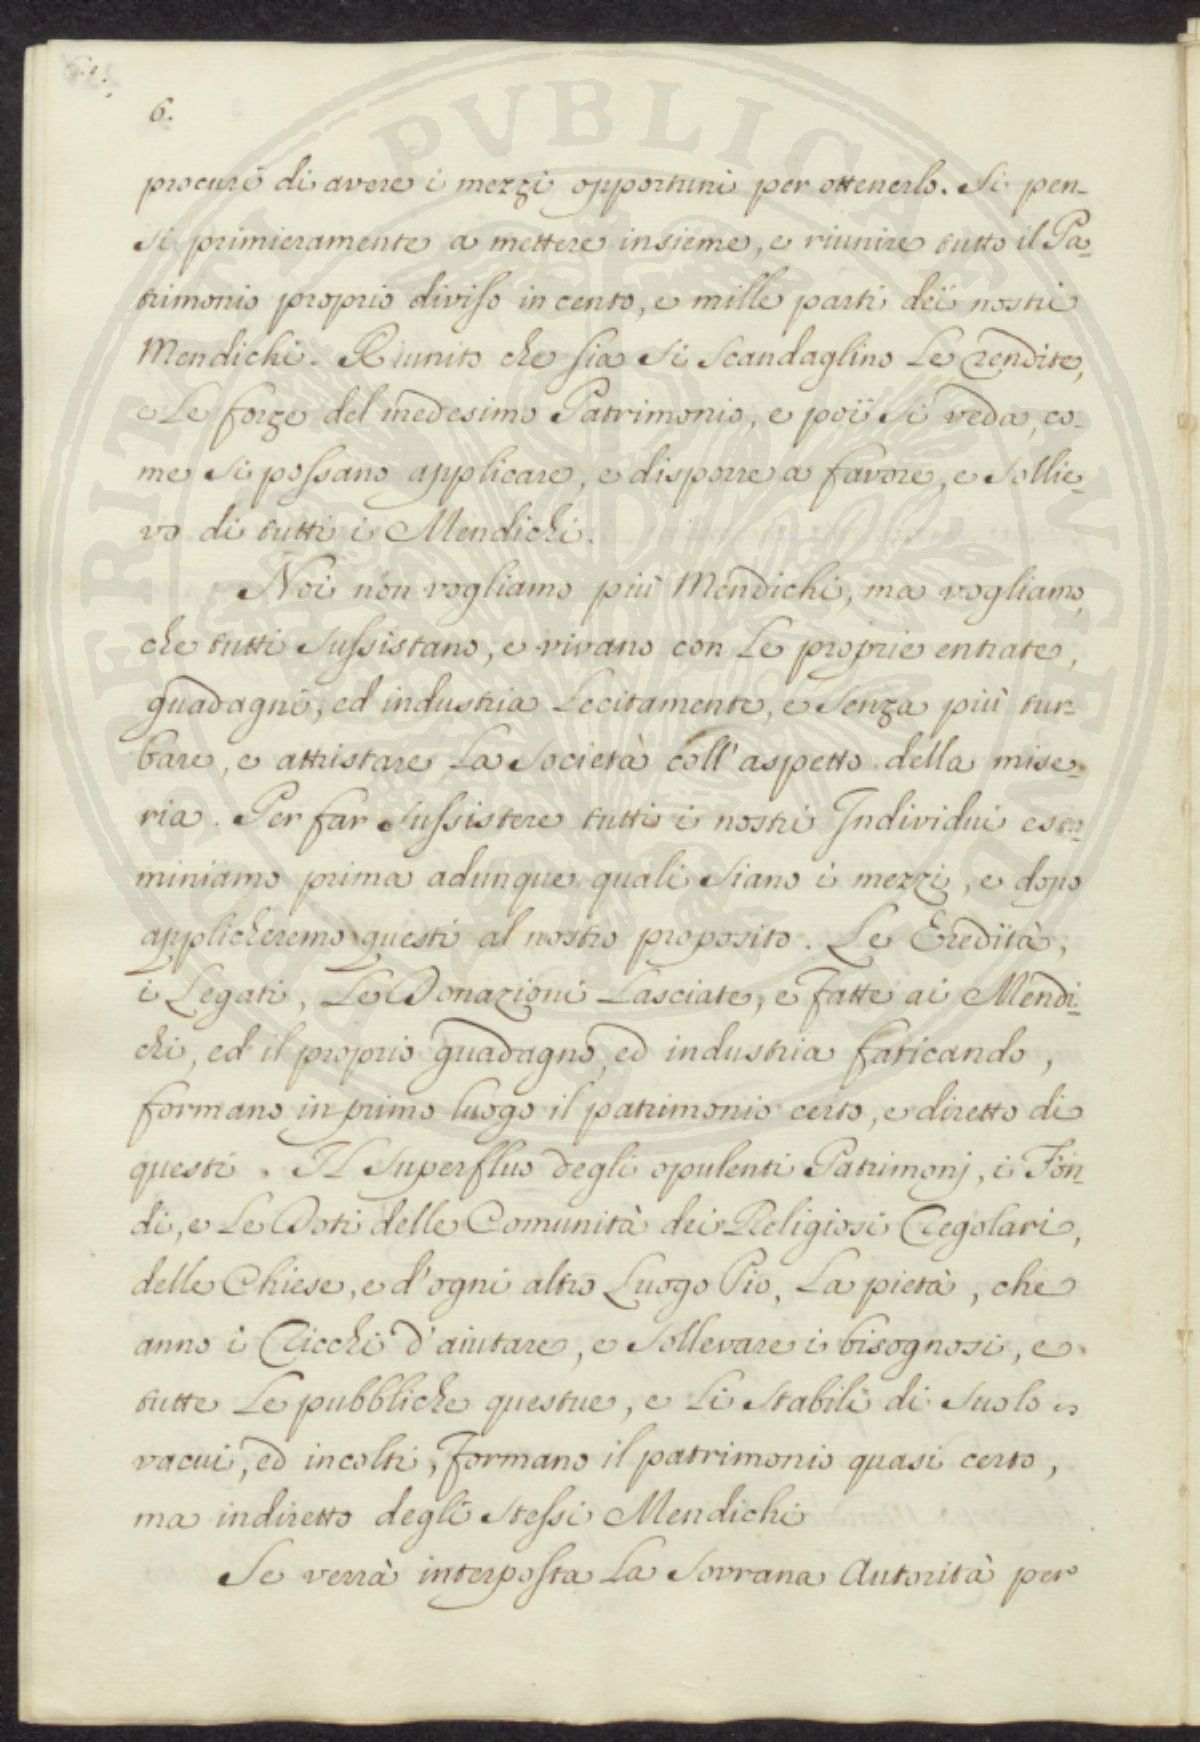 6.
procuri di avere i mezzi opportuni per ottenerlo. Si pen-
si primieramente a mettere insieme, e riunire tutto il Pa-
trimonio proprio diviso in cento, e mille parti dei nostri
Mendichi. Riunito che sia si scandaglino le rendite,
e le forze del medesimo Patrimonio, e poi si veda, co-
me si possano applicare, e disporre a favore, e sollie-
vo di tutti i Mendichi.
Noi non vogliamo più Mendichi, ma vogliamo,
che tutti sussistano, e vivano con le proprie entrate,
guadagni, ed industria lecitamente, e senza più tur-
bare, e attristare la società coll' aspetto della mise-
ria. Per far sussistere tutti i nostri Individui esa-
miniamo prima adunque quali siano i mezzi, e dopo
applicheremo questi al nostro proposito. Le Eredità,
i Legati, le Donazioni lasciate, e fatte ai Mendi-
chi, ed il proprio guadagno, ed industria faticando,
formano in primo luogo il patrimonio certo, e diretto di
questi. Il superfluo degli opulenti Patrimonj, i Fon-
di, e le Doti delle Comunità dei Religiosi Regolari,
delle Chiese, e d'ogni altro Luogo Pio, la pietà, che
anno i Ricchi d'aiutare, e sollevare i bisognosi, e
tutte le pubbliche questue, e li stabili di suolo
vacui, ed incolti, formano il patrimonio quasi certo,
ma indiretto degli stessi Mendichi
Se verrà interposta la Sovrana Autorità per
PUBLICAE